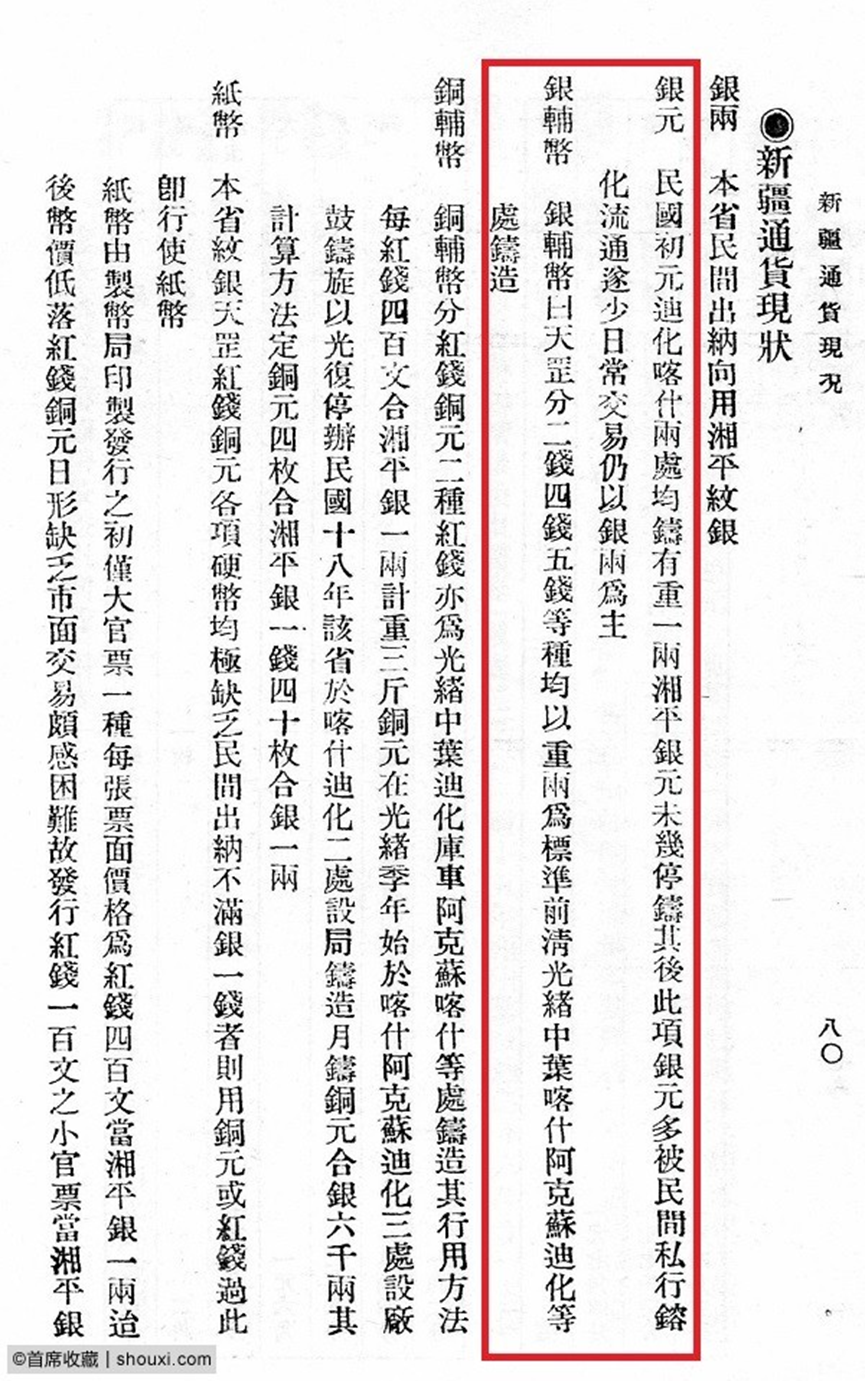 新疆通貨現況
八〇
◉新疆通貨現狀
銀兩　本省民間出納向用湘平紋銀
銀元　民國初元迪化喀什兩處均鑄有重一兩湘平銀元未幾停鑄其後此項銀元多被民間私行鎔
化流通遂少日常交易仍以銀兩爲主
銀輔幣　銀輔幣曰天罡分二錢四錢五錢等種均以重兩爲標準前淸光緒中葉喀什阿克蘇迪化等
處鑄造
銅輔幣　銅輔幣分紅錢銅元二種紅錢亦爲光緒中葉迪化庫車阿克蘇喀什等處鑄造其行用方法
每紅錢四百文合湘平銀一兩計重三斤銅元在光緒季年始於喀什阿克蘇迪化三處設廠
鼓鑄旋以光復停辦民國十八年該省於喀什迪化二處設局鑄造月鑄銅元合銀六千兩其
計算方法定銅元四枚合湘平銀一錢四十枚合銀一兩
紙幣　本省紋銀天罡紅錢銅元各項硬幣均極缺乏民間出納不滿銀一錢者則用銅元或紅錢過此
卽行使紙幣
紙幣由製幣局印製發行之初僅大官票一種每張票面價格爲紅錢四百文當湘平銀一兩迨
後幣價低落紅錢銅元日形缺乏市面交易頗感困難故發行紅錢一百文之小官票當湘平銀
©首席收藏 | shouxi.com